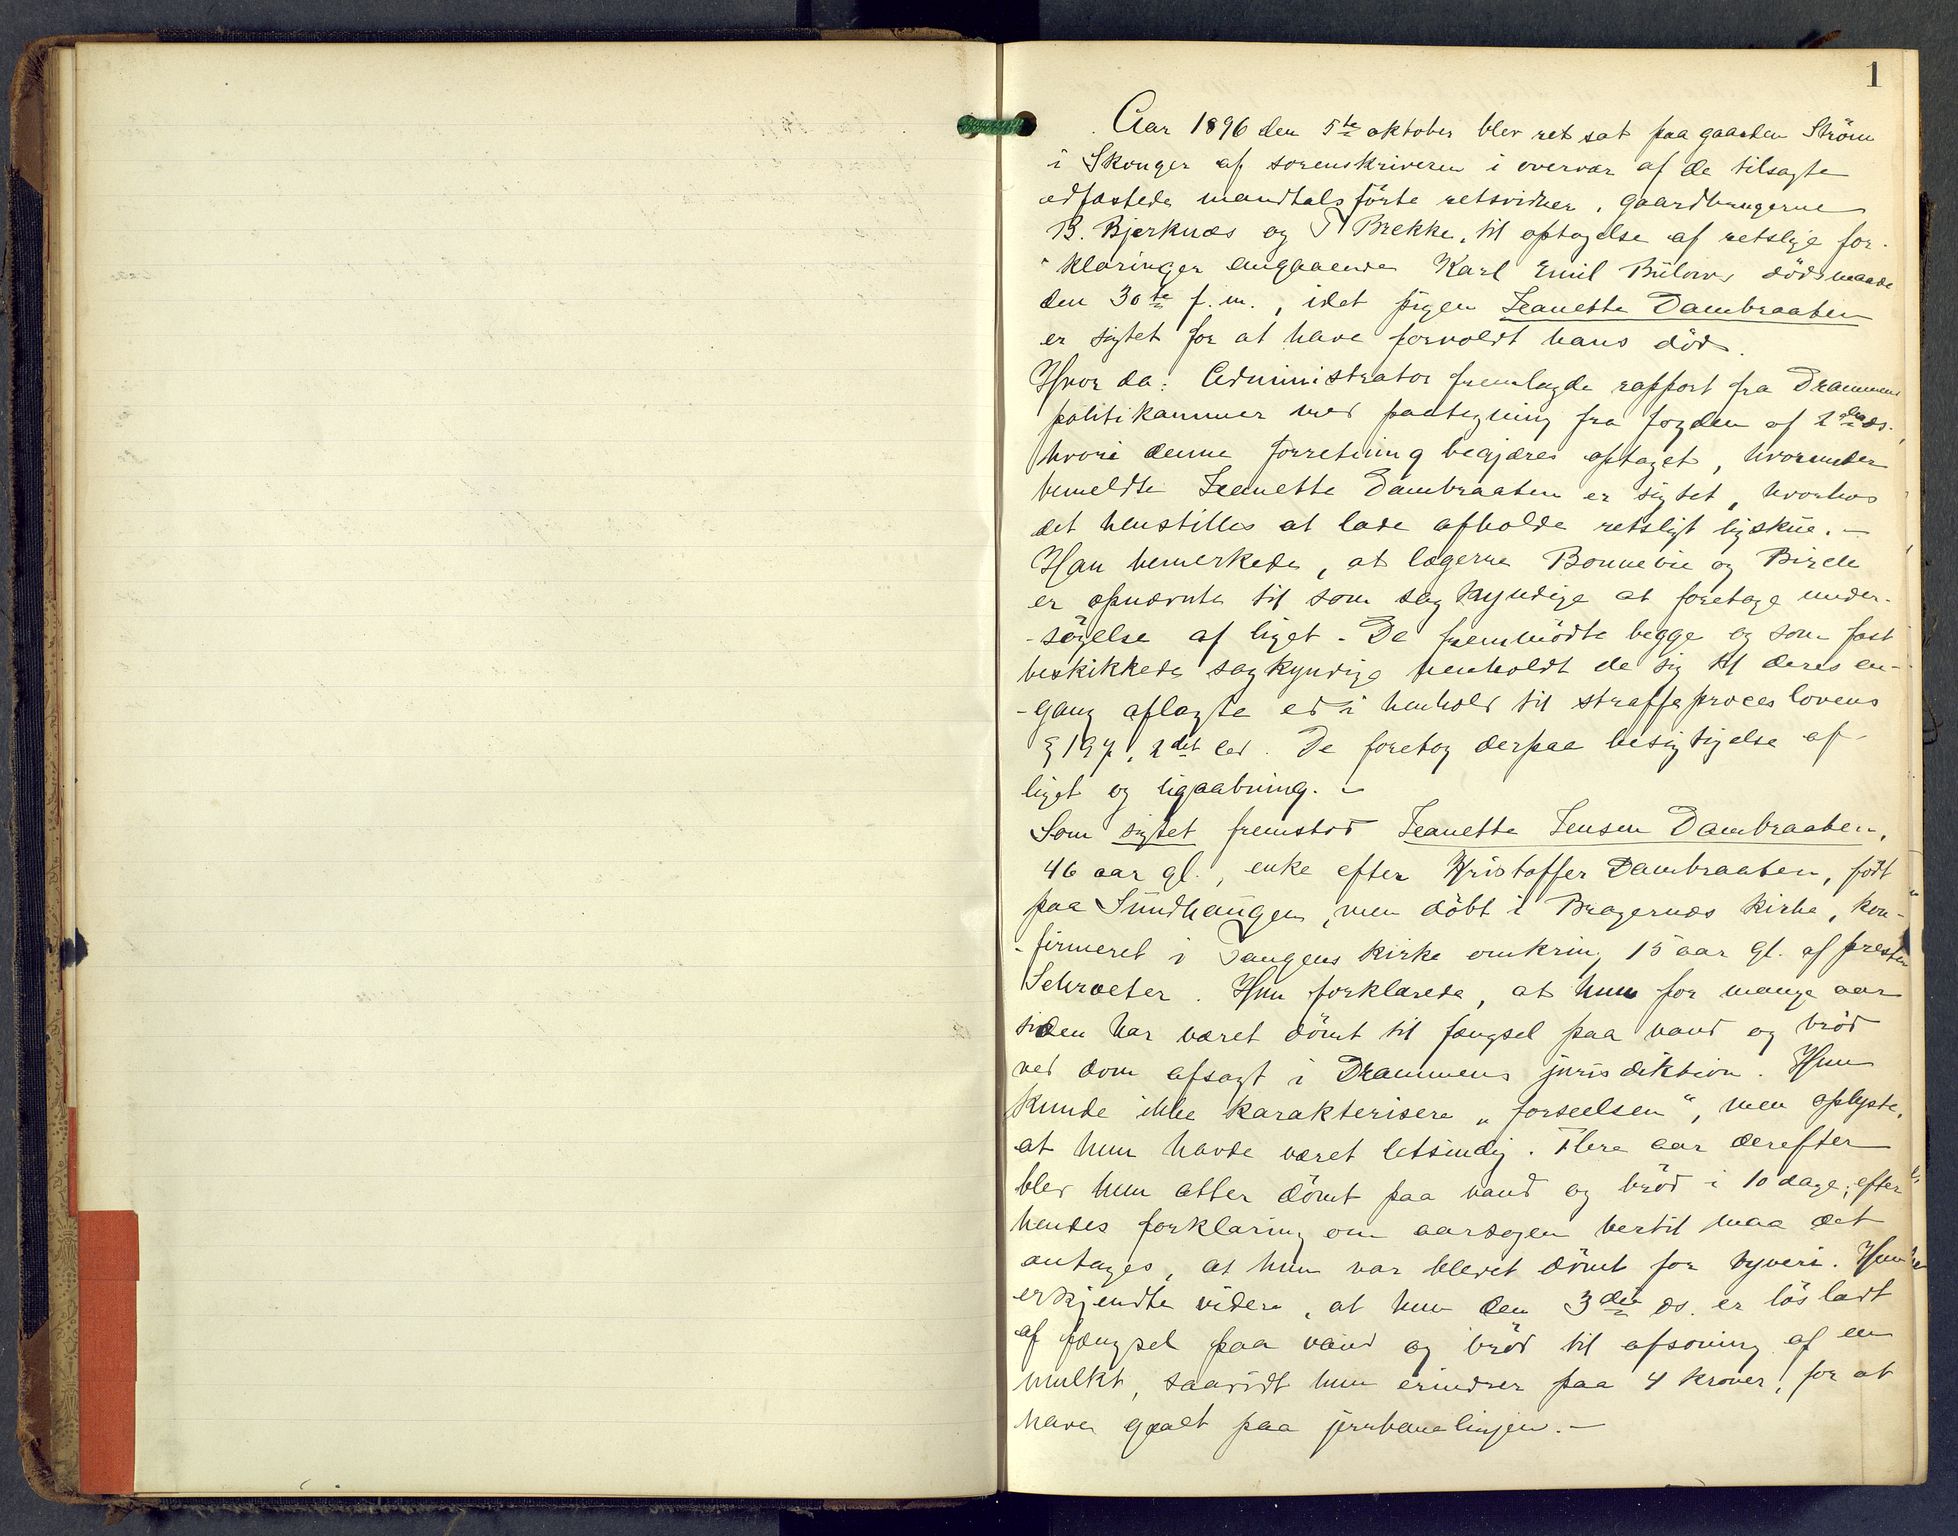 1
Aar 1896 den 5te oktober blev ret sat paa gaarden Ström
i Skouger af sorenskriveren i overvær af de tilsagte
edfæstede mandtalsförte retsvidner, gaardbrugerne
B. Bjerknæs og T Brekke, til optagelse af retslige for-
-klaringer angaaende Karl Emil Bülows dödsmaade
den 30te f. m., idet pigen Jeanette Dambraaten
er sigtet for at have forvoldt hans död.
Hvor da: Administrator fremlagde rapport fra Drammens
politikammer med paategning fra fogden af 2den ds.,
hvori denne forretning begjæres optaget, hvorunder
bemeldte Jeanette Dambraaten er sigtet, hvorhos
det henstilles at lade afholde retsligt ligskue. –
Han bemerkede, at lægerne Bonnevie og Birch
er opnævnte til som sagkyndige at foretage under-
-sögelse af liget. De fremmödte begge og som fast
beskikkede sagkyndige henholdt de sig til deres en-
-gang aflagte ed i henhold til straffeproceslovens
§ 197, 2det led. De foretog derpaa besigtigelse af
liget og ligaabning. –
Som sigtet fremstod Jeanette Jensen Dambraaten,
46 aar gl., enke efter Kristoffer Dambraaten, födt
paa Sundhaugen, men döbt i Bragernæs kirke, kon-
-firmeret i Tangens kirke omkring 15 aar gl. af presten
Schroeter. Hun forklarede, at hun for mange aar
siden har været dömt til fængsel paa vand og bröd
ved dom afsagt i Drammens jurisdiktion. Hun
kunde ikke karakterisere „forseelsen“, men oplyste,
at hun havde været letsindig. Flere aar derefter
blev hun atter dömt paa vand og bröd i 10 dage; efter
hendes forklaring om aarsagen hertil maa det
antages, at hun var blevet dömt for tyveri. Hun
erkjendte videre, at hun den 3die ds. er lösladt
af fængsel paa vand og bröd til afsoning af en
mulkt, saavidt hun erindrer paa 4 kroner, for at
have gaaet paa jernbanelinjen. –